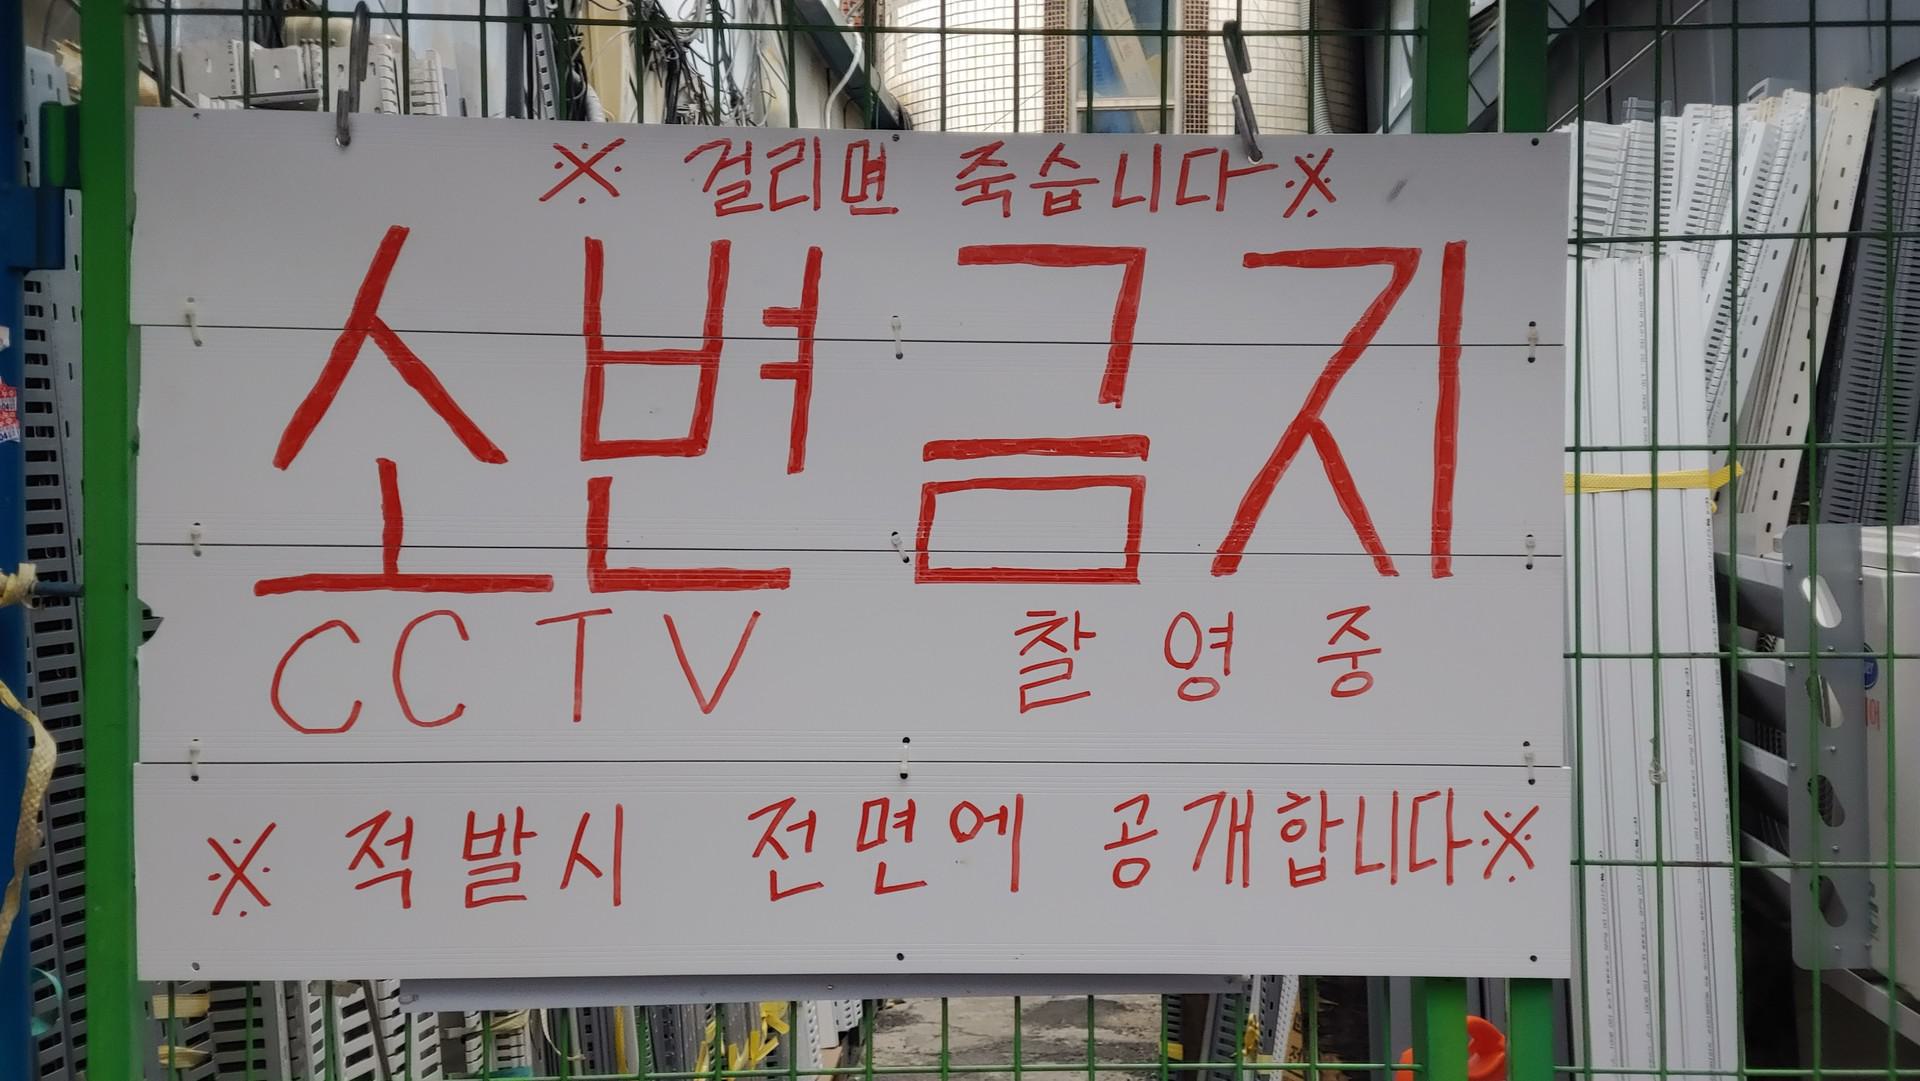 ※ 걸리면 죽습니다 ※
소변금지
CCTV 촬영중
※ 적발시 전면에 공개합니다 ※